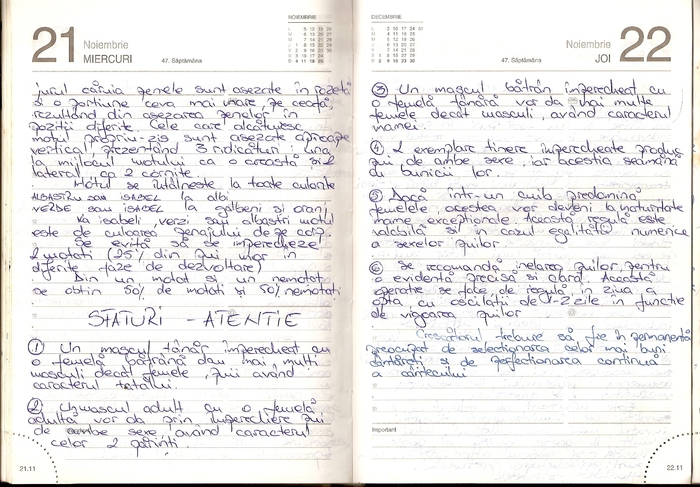 NOIEMBRIE
21 Noiembrie
MIERCURI
47. Săptămâna
jurul căruia penele sunt așezate în rozetă
și o porțiune ceva mai mare, pe ceafă,
rezultând din așezarea penelor în
poziții diferite. Cele care alcătuiesc
moțul propriu-zis sunt așezate aproape
vertical, prezentând 3 ridicături: una
la mijlocul moțului ca o creastă și 2
laterale ca 2 cornițe.
Moțul se întâlnește la toate culorile
ALBASTRU sau ISABEL la albi
VERDE sau ISABEL galbeni și oranj
La isabel, verzi sau albaștri moțul
este de culoarea penajului de pe corp.
Se evită să se împerecheze
2 motați (25% din pui mor în
diferite faze de dezvoltare)
Din un motat și un nemotat
se obțin 50% de motați și 50% nemotați
SFATURI - ATENTIE
① Un mascul tânăr împerecheat cu
o femelă bătrână dau mai mulți
masculi decat femele, puii având
caracterul tatălui.
② Un mascul adult cu o femelă
adultă vor da prin împerechere pui
de ambe sexe, având caracterul
celor 2 părinți.
21.11
DECEMBRIE
Noiembrie 22
JOI
47. Săptămâna
③ Un mascul bătrân împerecheat cu
o femelă tânără vor da mai multe
femele decat masculi, având caracterul
mamei.
④ 2 exemplare tinere împerecheate produc
pui de ambe sexe, iar aceștia seamănă
cu bunicii lor.
⑤ Dacă într-un cuib predomină
femelele, acestea vor deveni la maturitate
mame excepționale. Această regulă este
valabilă și în cazul egalității numerice
a sexelor puilor.
⑥ Se recomandă inelarea puilor, pentru
o evidentă precisă și clară. Această
operație se face de regulă în ziua a
opta, cu oscilații de 1-2 zile în funcție
de vigoarea puilor
Crescătorul trebuie să fie în permanență
preocupat de selecționarea celor mai buni
cântăreți și de perfecționarea continuă
a cântecului
Important
22.11